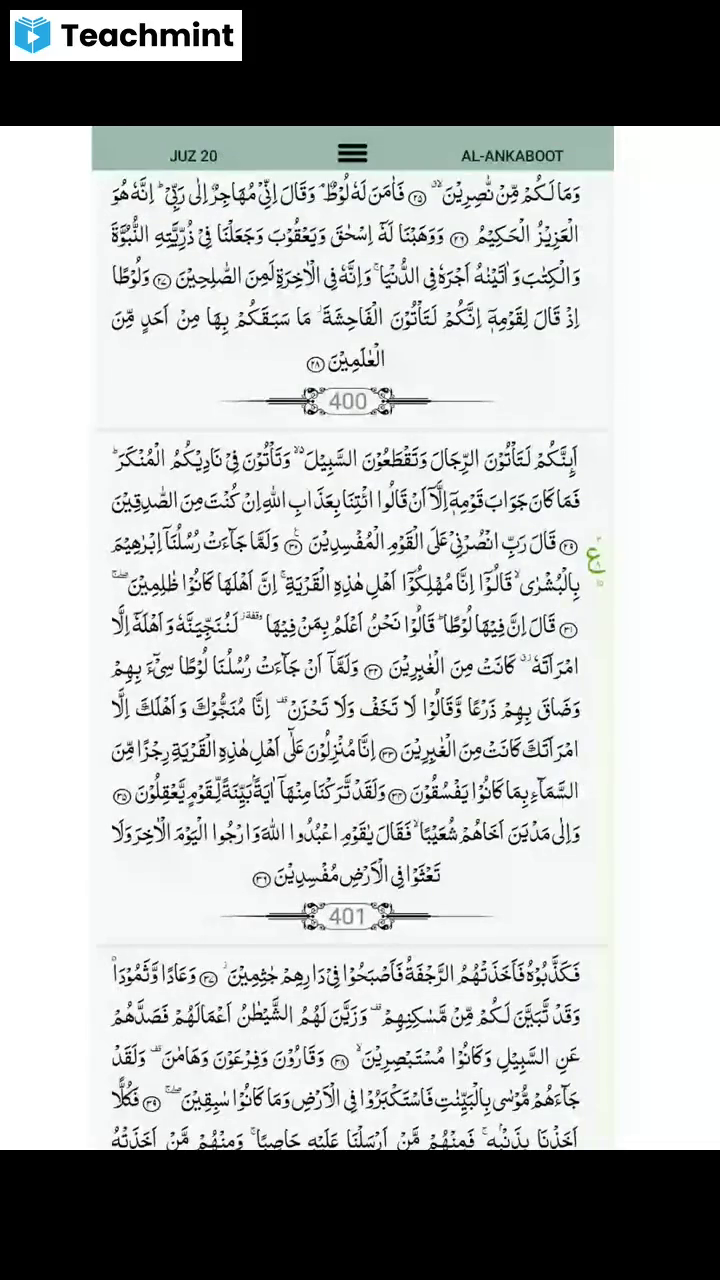 Teachmint
JUZ 20
AL-ANKABOOT
وَمَا لَكُمْ مِّنْ نّٰصِرِيْنَ ۙ۝۲۵ فَاٰمَنَ لَهٗ لُوْطٌ ۘ وَقَالَ اِنِّيْ مُهَاجِرٌ اِلٰى رَبِّيْ ؕ اِنَّهٗ هُوَ
الْعَزِيْزُ الْحَكِيْمُ ۝۲۶ وَوَهَبْنَا لَهٗۤ اِسْحٰقَ وَيَعْقُوْبَ وَجَعَلْنَا فِيْ ذُرِّيَّتِهِ النُّبُوَّةَ
وَالْكِتٰبَ وَاٰتَيْنٰهُ اَجْرَهٗ فِي الدُّنْيَا ۚ وَاِنَّهٗ فِي الْاٰخِرَةِ لَمِنَ الصّٰلِحِيْنَ ۝۲۷ وَلُوْطًا
اِذْ قَالَ لِقَوْمِهٖۤ اِنَّكُمْ لَتَاْتُوْنَ الْفَاحِشَةَ ۫ مَا سَبَقَكُمْ بِهَا مِنْ اَحَدٍ مِّنَ
الْعٰلَمِيْنَ ۝۲۸
400
اَىِٕنَّكُمْ لَتَاْتُوْنَ الرِّجَالَ وَتَقْطَعُوْنَ السَّبِيْلَ ۙ۬ وَتَاْتُوْنَ فِيْ نَادِيْكُمُ الْمُنْكَرَ ؕ
فَمَا كَانَ جَوَابَ قَوْمِهٖۤ اِلَّاۤ اَنْ قَالُوا ائْتِنَا بِعَذَابِ اللّٰهِ اِنْ كُنْتَ مِنَ الصّٰدِقِيْنَ
۝۲۹ قَالَ رَبِّ انْصُرْنِيْ عَلَى الْقَوْمِ الْمُفْسِدِيْنَ ۝۳۰ وَلَمَّا جَآءَتْ رُسُلُنَاۤ اِبْرٰهِيْمَ
ع
بِالْبُشْرٰى ۙ قَالُوْۤا اِنَّا مُهْلِكُوْۤا اَهْلِ هٰذِهِ الْقَرْيَةِ ۚ اِنَّ اَهْلَهَا كَانُوْا ظٰلِمِيْنَ ۖۚ
۝۳۱ قَالَ اِنَّ فِيْهَا لُوْطًا ؕ قَالُوْا نَحْنُ اَعْلَمُ بِمَنْ فِيْهَا وقفة لَنُنَجِّيَنَّهٗ وَاَهْلَهٗۤ اِلَّا
امْرَاَتَهٗ ؗ كَانَتْ مِنَ الْغٰبِرِيْنَ ۝۳۲ وَلَمَّاۤ اَنْ جَآءَتْ رُسُلُنَا لُوْطًا سِيْٓءَ بِهِمْ
وَضَاقَ بِهِمْ ذَرْعًا وَّقَالُوْا لَا تَخَفْ وَلَا تَحْزَنْ ۫ اِنَّا مُنَجُّوْكَ وَاَهْلَكَ اِلَّا
امْرَاَتَكَ كَانَتْ مِنَ الْغٰبِرِيْنَ ۝۳۳ اِنَّا مُنْزِلُوْنَ عَلٰۤى اَهْلِ هٰذِهِ الْقَرْيَةِ رِجْزًا مِّنَ
السَّمَآءِ بِمَا كَانُوْا يَفْسُقُوْنَ ۝۳۴ وَلَقَدْ تَّرَكْنَا مِنْهَاۤ اٰيَةًۢ بَيِّنَةً لِّقَوْمٍ يَّعْقِلُوْنَ ۝۳۵
وَاِلٰى مَدْيَنَ اَخَاهُمْ شُعَيْبًا ۙ فَقَالَ يٰقَوْمِ اعْبُدُوا اللّٰهَ وَارْجُوا الْيَوْمَ الْاٰخِرَ وَلَا
تَعْثَوْا فِي الْاَرْضِ مُفْسِدِيْنَ ۝۳۶
401
فَكَذَّبُوْهُ فَاَخَذَتْهُمُ الرَّجْفَةُ فَاَصْبَحُوْا فِيْ دَارِهِمْ جٰثِمِيْنَ ؗ ۝۳۷ وَعَادًا وَّثَمُوْدَا۟
وَقَدْ تَّبَيَّنَ لَكُمْ مِّنْ مَّسٰكِنِهِمْ ۫ وَزَيَّنَ لَهُمُ الشَّيْطٰنُ اَعْمَالَهُمْ فَصَدَّهُمْ
عَنِ السَّبِيْلِ وَكَانُوْا مُسْتَبْصِرِيْنَ ۙ ۝۳۸ وَقَارُوْنَ وَفِرْعَوْنَ وَهَامٰنَ ۫ وَلَقَدْ
جَآءَهُمْ مُّوْسٰى بِالْبَيِّنٰتِ فَاسْتَكْبَرُوْا فِي الْاَرْضِ وَمَا كَانُوْا سٰبِقِيْنَ ۖۚ ۝۳۹ فَكُلًّا
اَخَذْنَا بِذَنْۢبِهٖ ۚ فَمِنْهُمْ مَّنْ اَرْسَلْنَا عَلَيْهِ حَاصِبًا ۚ وَمِنْهُمْ مَّنْ اَخَذَتْهُ